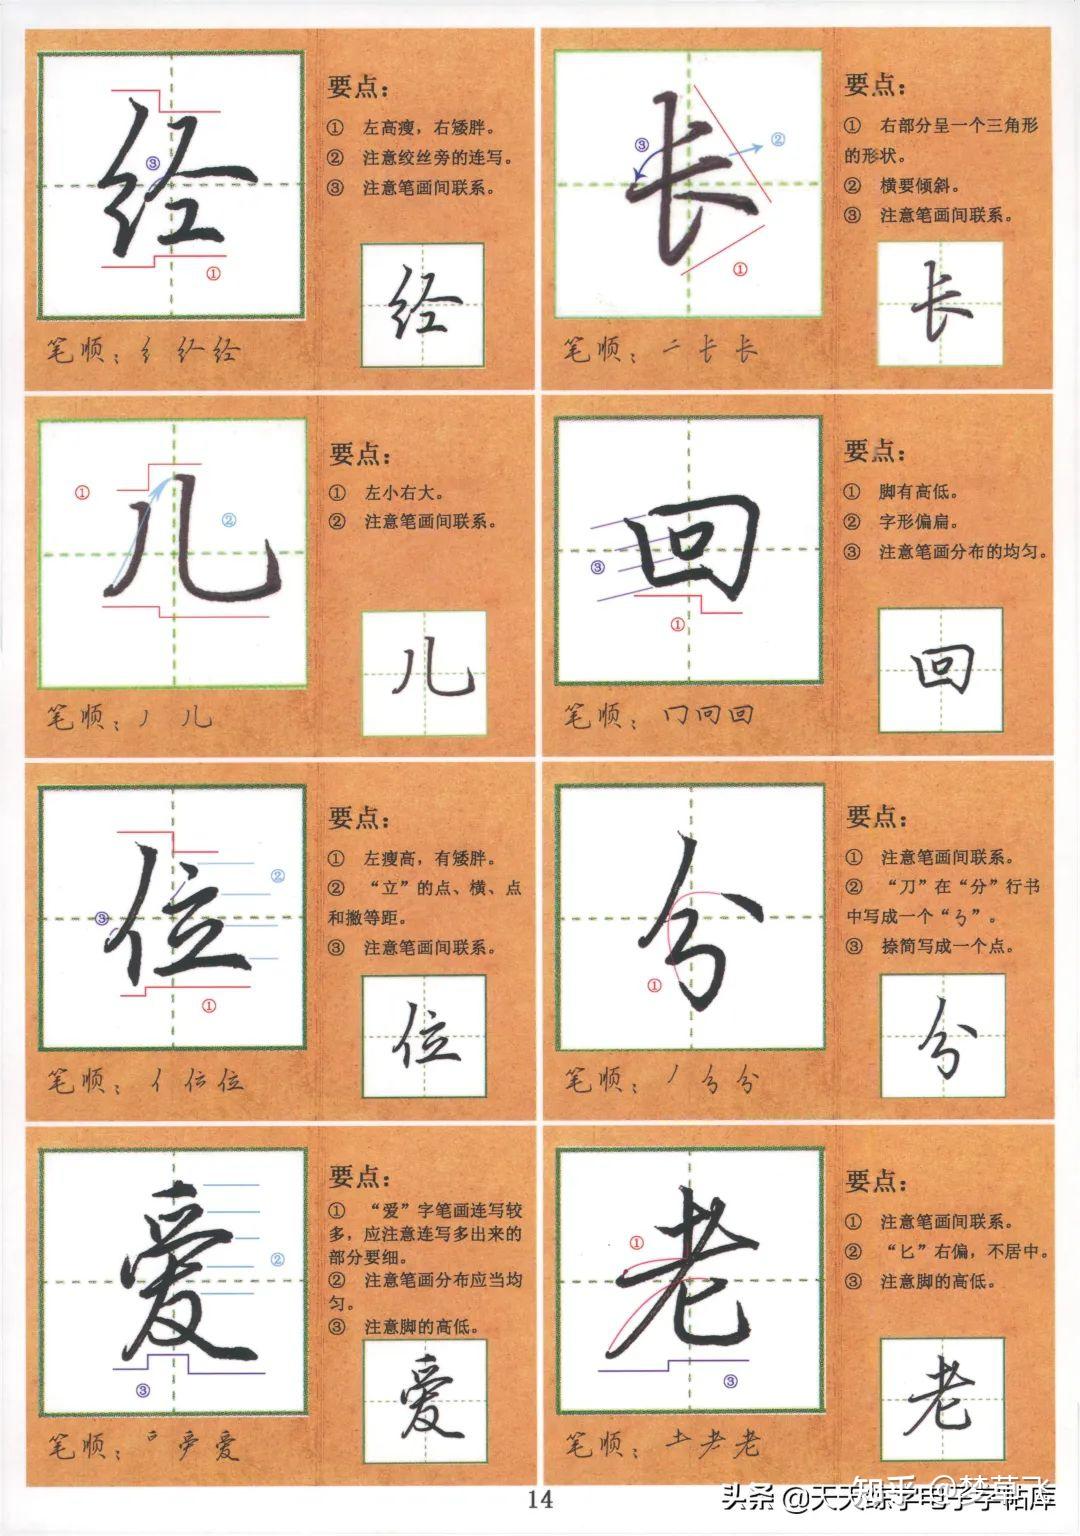 经
要点：
① 左高瘦，右矮胖。
② 注意绞丝旁的连写。
③ 注意笔画间联系。
③
①
经
笔顺：纟 经 经
长
要点：
① 右部分呈一个三角形
的形状。
② 横要倾斜。
③ 注意笔画间联系。
③
②
①
长
笔顺：二 长 长
儿
要点：
① 左小右大。
② 注意笔画间联系。
①
②
儿
笔顺：丿 儿
回
要点：
① 脚有高低。
② 字形偏扁。
③ 注意笔画分布的均匀。
③
①
回
笔顺：冂 回 回
位
要点：
① 左瘦高，有矮胖。
② “立”的点、横、点
和撇等距。
③ 注意笔画间联系。
②
③
①
位
笔顺：亻 位 位
分
要点：
① 注意笔画间联系。
② “刀”在“分”行书
中写成一个“”。
③ 捺简写成一个点。
①
分
笔顺：丿 分 分
爱
要点：
① “爱”字笔画连写较
多，应注意连写多出来的
部分要细。
② 注意笔画分布应当均
匀。
③ 注意脚的高低。
②
③
爱
笔顺：爱
老
要点：
① 注意笔画间联系。
② “匕”右偏，不居中。
③ 注意脚的高低。
①
③
老
笔顺：土 老 老
14
知乎 @梦莓飞
头条 @天天练字电子字帖库